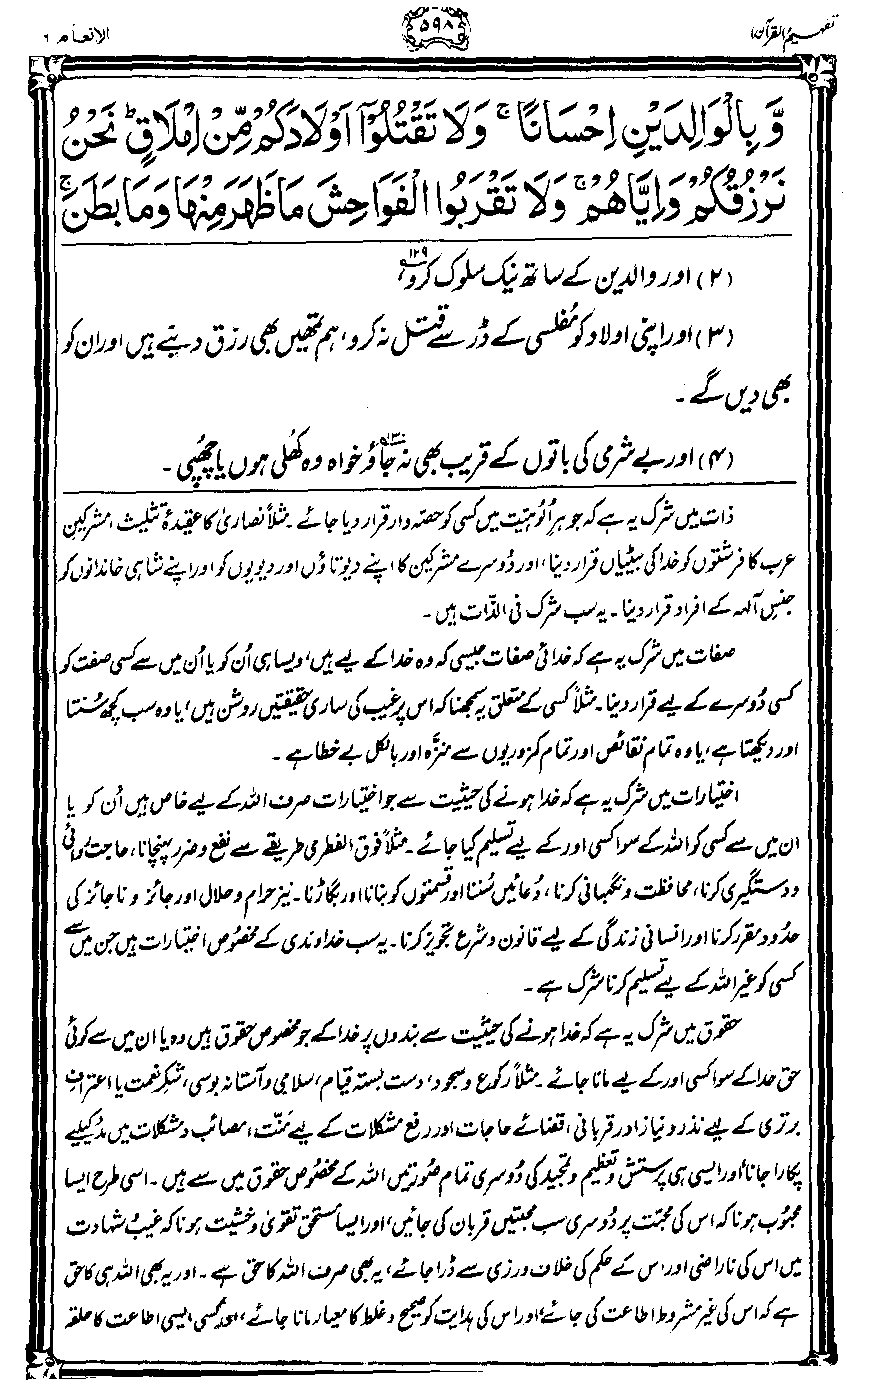 تفہیم القرآن ۱
۵۹۸
الانعام ۶
وَّ بِالْوَالِدَيْنِ اِحْسَانًا ۚ وَلَا تَقْتُلُوْۤا اَوْلَادَكُمْ مِّنْ اِمْلَاقٍ ؕ نَحْنُ
نَرْزُقُكُمْ وَاِيَّاهُمْ ۚ وَلَا تَقْرَبُوا الْفَوَاحِشَ مَا ظَهَرَ مِنْهَا وَمَا بَطَنَ ۚ
(۲) اور والدین کے ساتھ نیک سلوک کرو،۱۲۹
(۳) اور اپنی اولاد کو مُفلسی کے ڈر سے قتل نہ کرو، ہم تمھیں بھی رزق دیتے ہیں اور ان کو
بھی دیں گے۔
(۴) اور بے شرمی کی باتوں کے قریب بھی نہ جاؤ۱۳۰ خواہ وہ کھُلی ہوں یا چھُپی۔
ذات میں شرک یہ ہے کہ جوہرِ اُلوہیّت میں کسی کو حصہ دار قرار دیا جائے۔ مثلاً نصاریٰ کا عقیدۂ تثلیث، مشرکینِ
عرب کا فرشتوں کو خدا کی بیٹیاں قرار دینا، اور دُوسرے مشرکین کا اپنے دیوتاؤں اور دیویوں کو اور اپنے شاہی خاندانوں کو
جنسِ آلہہ کے افراد قرار دینا۔ یہ سب شرک فی الذّات ہیں۔
صفات میں شرک یہ ہے کہ خدائی صفات جیسی کہ وہ خدا کے لیے ہیں، ویسا ہی اُن کو یا اُن میں سے کسی صفت کو
کسی دُوسرے کے لیے قرار دینا۔ مثلاً کسی کے متعلق یہ سمجھنا کہ اس پر غیب کی ساری حقیقتیں روشن ہیں، یا وہ سب کچھ سُنتا
اور دیکھتا ہے، یا وہ تمام نقائص اور تمام کمزوریوں سے منزَّہ اور بالکل بے خطا ہے۔
اختیارات میں شرک یہ ہے کہ خدا ہونے کی حیثیت سے جو اختیارات صرف اللہ کے لیے خاص ہیں اُن کو یا
ان میں سے کسی کو اللہ کے سوا کسی اور کے لیے تسلیم کیا جائے۔ مثلاً فوق الفطری طریقے سے نفع و ضرر پہنچانا، حاجت روائی
و دستگیری کرنا، محافظت و نگہبانی کرنا، دُعائیں سُننا اور قسمتوں کو بنانا اور بگاڑنا۔ نیز حرام و حلال اور جائز و ناجائز کی
حدُود مقرر کرنا اور انسانی زندگی کے لیے قانون و شرع تجویز کرنا۔ یہ سب خداوندی کے مخصُوص اختیارات ہیں جن میں سے
کسی کو غیر اللہ کے لیے تسلیم کرنا شرک ہے۔
حقوق میں شرک یہ ہے کہ خدا ہونے کی حیثیت سے بندوں پر خدا کے جو مخصُوص حقوق ہیں وہ یا ان میں سے کوئی
حق خدا کے سوا کسی اور کے لیے مانا جائے۔ مثلاً رکوع و سجود، دست بستہ قیام، سلامی و آستانہ بوسی، شکرِ نعمت یا اعترافِ
برتری کے لیے نذر و نیاز اور قربانی، قضائے حاجات اور رفعِ مشکلات کے لیے مَنّت، مصائب و مشکلات میں مدد کیلیے
پکارا جانا، اور ایسی ہی پرستش و تعظیم و تمجید کی دُوسری تمام صُورتیں اللہ کے مخصُوص حقوق میں سے ہیں۔ اسی طرح ایسا
محبُوب ہونا کہ اس کی محبّت پر دُوسری سب محبتیں قربان کی جائیں، اور ایسا مستحقِ تقویٰ و خشیت ہونا کہ غیب و شہادت
میں اس کی ناراضی اور اس کے حکم کی خلاف ورزی سے ڈرا جائے، یہ بھی صرف اللہ کا حق ہے۔ اور یہ بھی اللہ ہی کا حق
ہے کہ اس کی غیر مشروط اطاعت کی جائے، اور اس کی ہدایت کو صحیح و غلط کا معیار مانا جائے، اور کسی ایسی اطاعت کا حلقہ